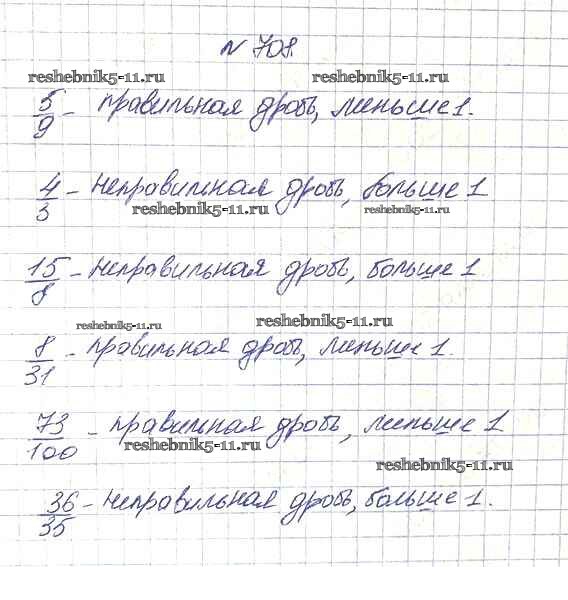 № 708.
reshebnik5-11.ru
5/9 - правильная дробь, меньше 1.
4/3 - неправильная дробь, больше 1
reshebnik5-11.ru reshebnik5-11.ru
15/8 - неправильная дробь, больше 1
reshebnik5-11.ru reshebnik5-11.ru
8/31 - правильная дробь, меньше 1.
73/100 - правильная дробь, меньше 1
reshebnik5-11.ru
reshebnik5-11.ru
36/35 - неправильная дробь, больше 1.